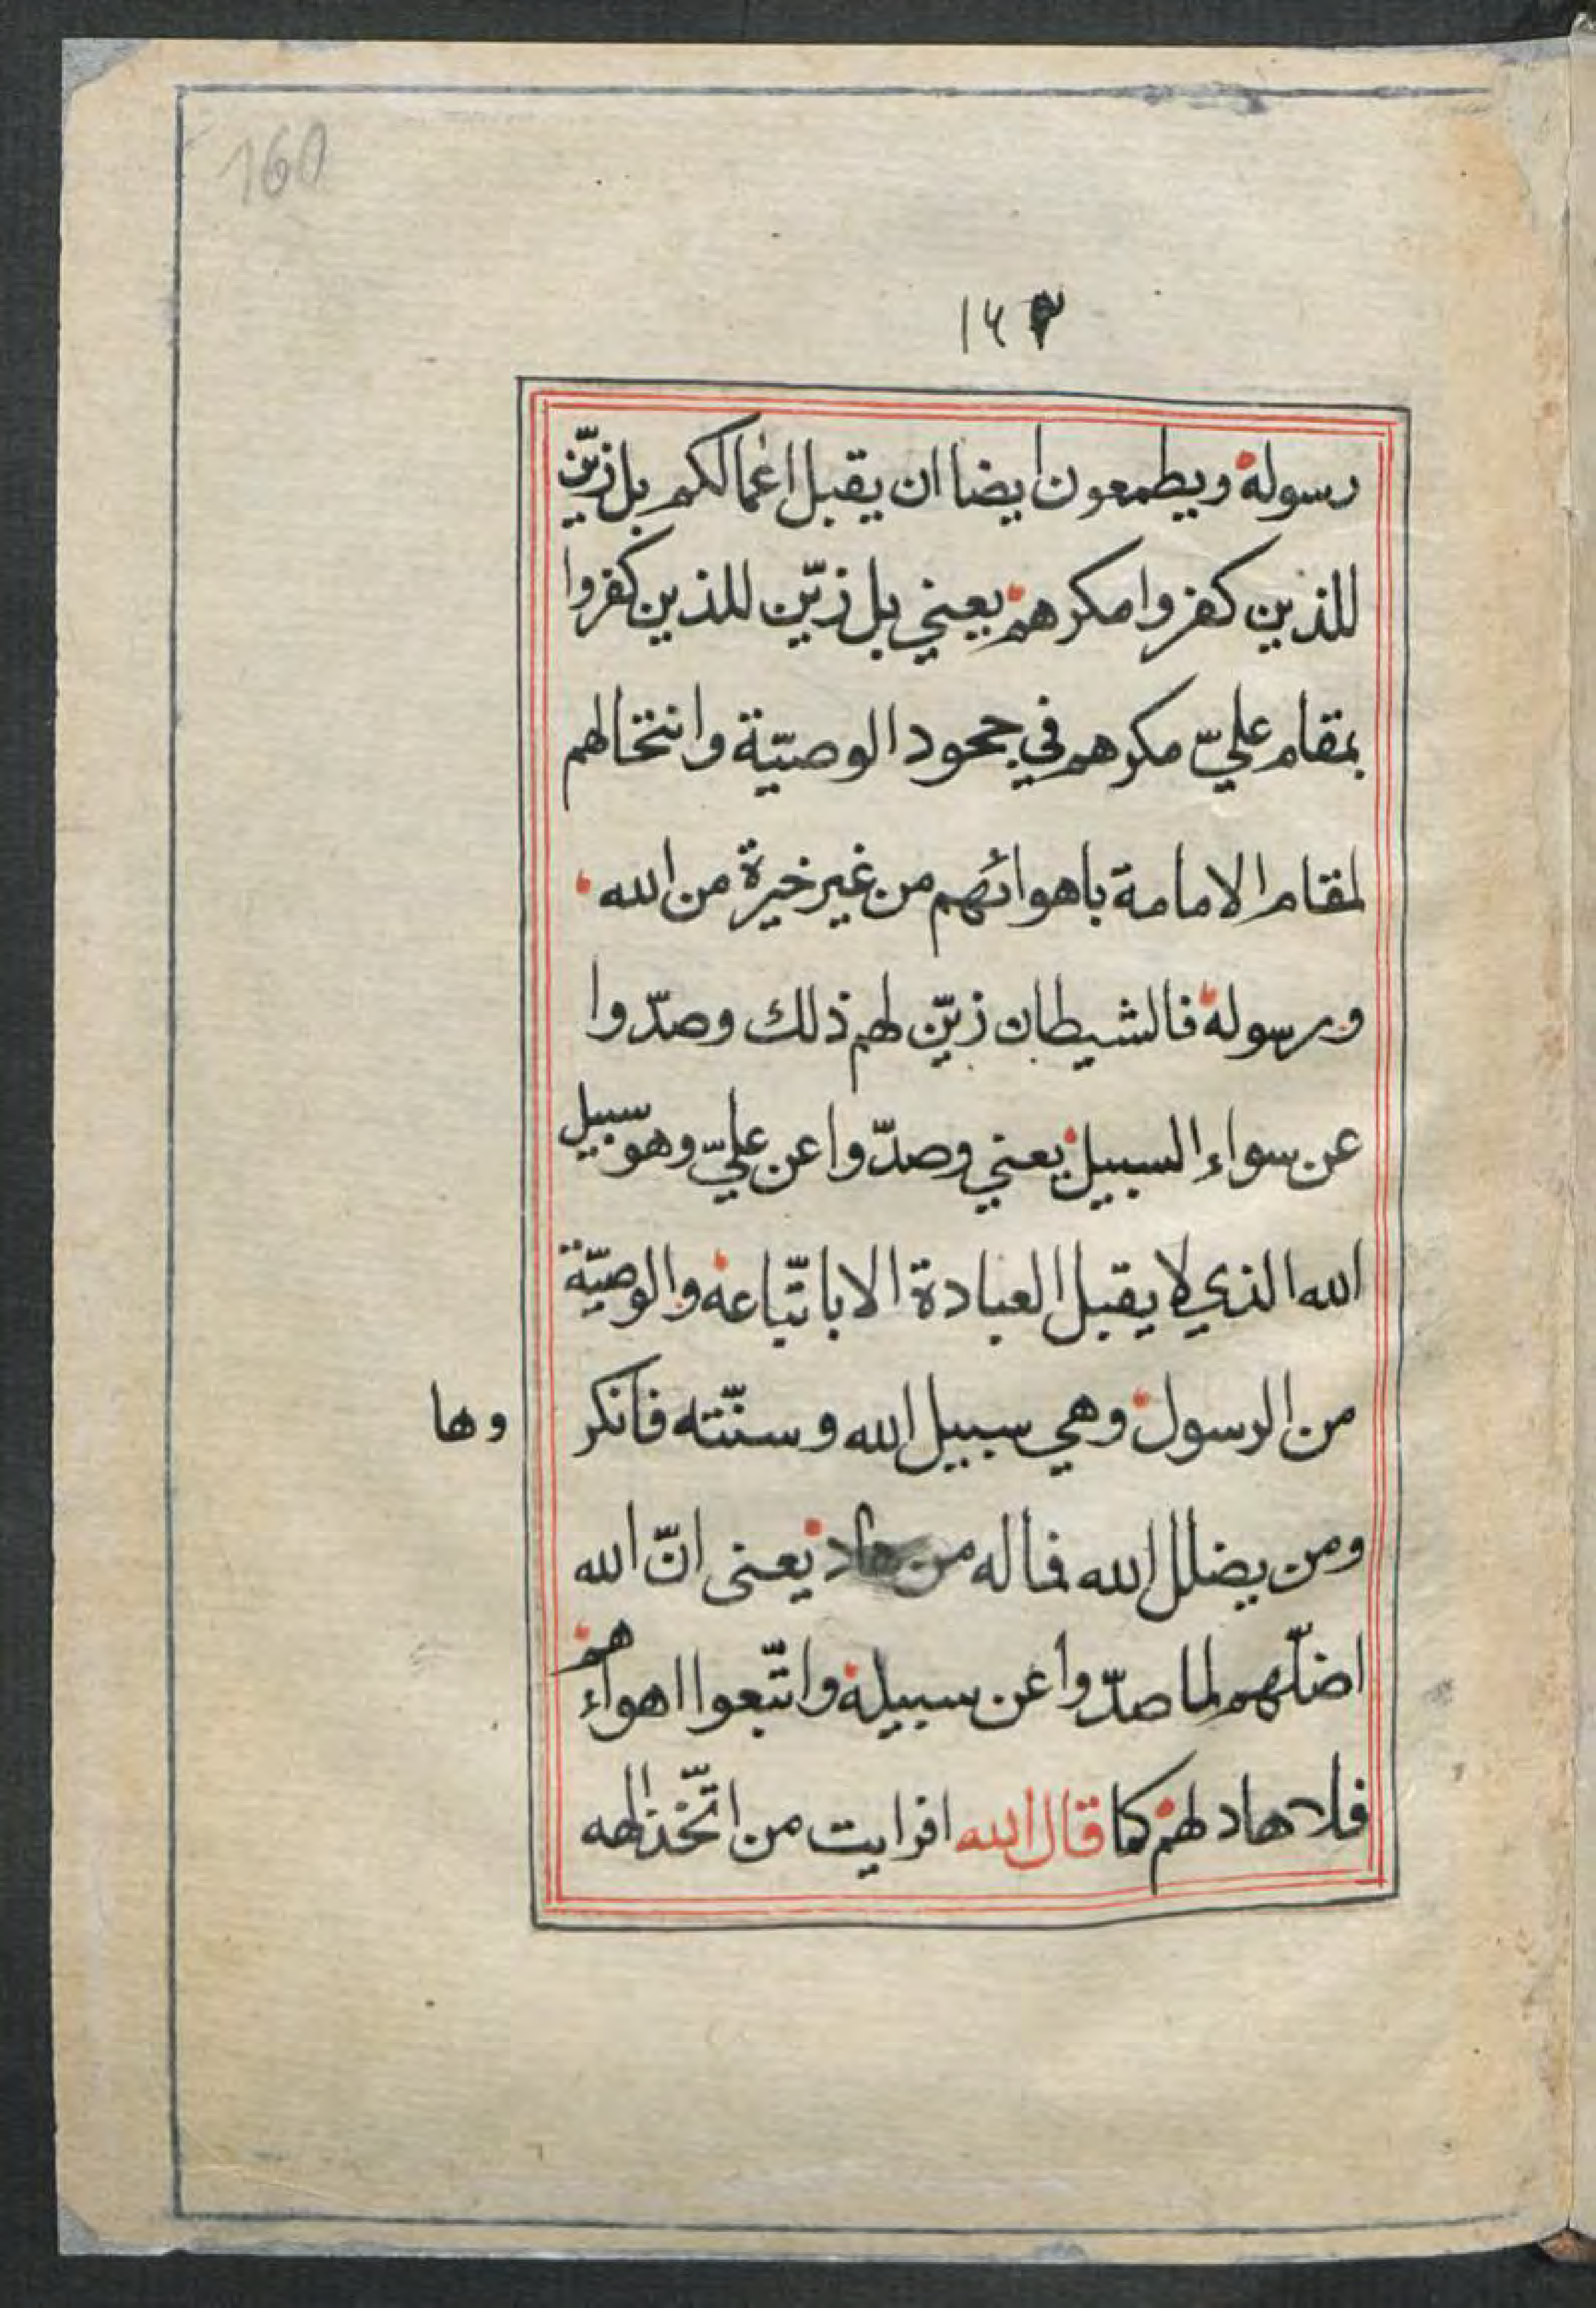 160
۱۶۳
رسوله ويطمعون ايضا ان يقبل اعمالكم بل زيّن
للذين كفروا مكرهم يعني بل زيّن للذين كفروا
بمقام عليّ مكرهم في جحود الوصيّة وانتحالهم
لمقام الامامة باهوائهم من غير خيرة من الله
ورسوله فالشيطان زيّن لهم ذلك وصدّوا
عن سواء السبيل يعني وصدّوا عن عليّ وهو سبيل
الله الذي لا يقبل العبادة الا باتّباعه والوصيّة
من الرسول وهي سبيل الله وسنّته فانكروها
ومن يضلل الله فما له من هاد يعنى انّ الله
اضلّهم لما صدّوا عن سبيله واتّبعوا اهواءهم
فلا هاد لهم كما قال الله افرايت من اتّخذ الهه